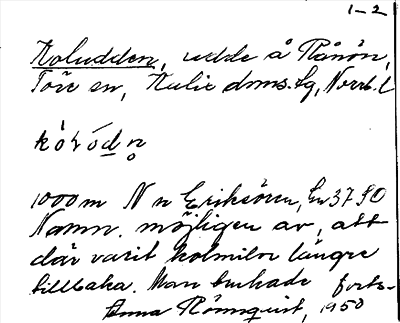 1–2
Koludden, udde å Rånön,
Töre sn, Kalix doms.sg, Norrb.l
1000 m N n Eriksören, Ek 3780
Namn. möjligen av, att
där varit kolmilor längre
tillbaka. Man brukade forts–
Anna Rönnquist, 1950